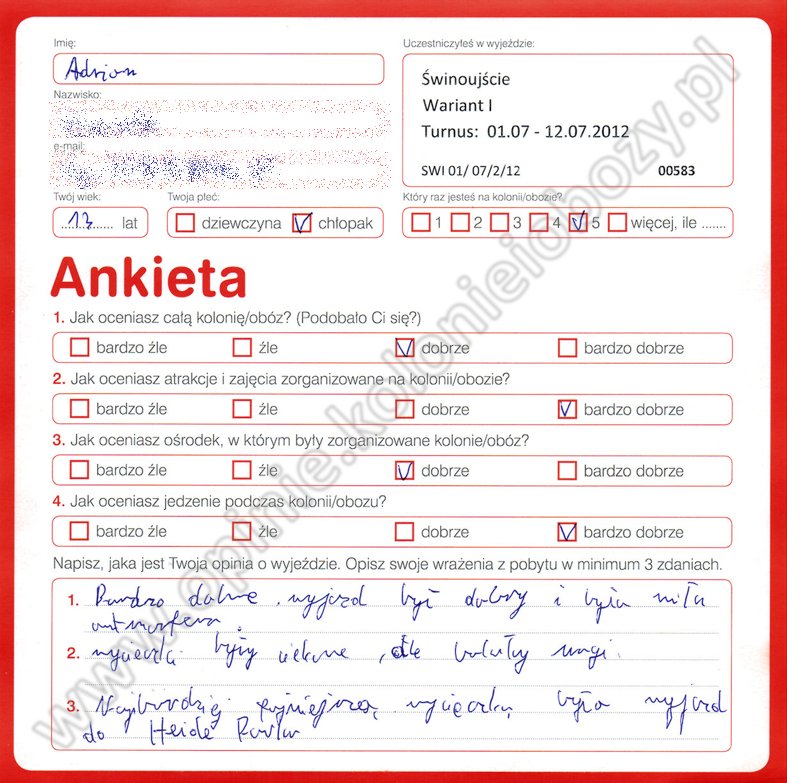 Imię:
Adrian
Uczestniczyłeś w wyjeździe:
Świnoujście
Wariant I
Turnus: 01.07 - 12.07.2012
SWI 01/ 07/2/12 00583
Nazwisko:
e-mail:
Twój wiek:
13 lat
Twoja płeć:
dziewczyna chłopak
Który raz jesteś na kolonii/obozie?
1 2 3 4 5 więcej, ile .......
Ankieta
1. Jak oceniasz całą kolonię/obóz? (Podobało Ci się?)
bardzo źle źle dobrze bardzo dobrze
2. Jak oceniasz atrakcje i zajęcia zorganizowane na kolonii/obozie?
bardzo źle źle dobrze bardzo dobrze
3. Jak oceniasz ośrodek, w którym były zorganizowane kolonie/obóz?
bardzo źle źle dobrze bardzo dobrze
4. Jak oceniasz jedzenie podczas kolonii/obozu?
bardzo źle źle dobrze bardzo dobrze
Napisz, jaka jest Twoja opinia o wyjeździe. Opisz swoje wrażenia z pobytu w minimum 3 zdaniach.
1. Bardzo dobrze, wyjazd był dobry i była miła
atmosfera
2. wycieczki były ciekawe, ale bolały nogi.
3. Najbardziej wycieczką była wyjazd
do Heide Parku
www.opinie.kolonieiobozy.pl